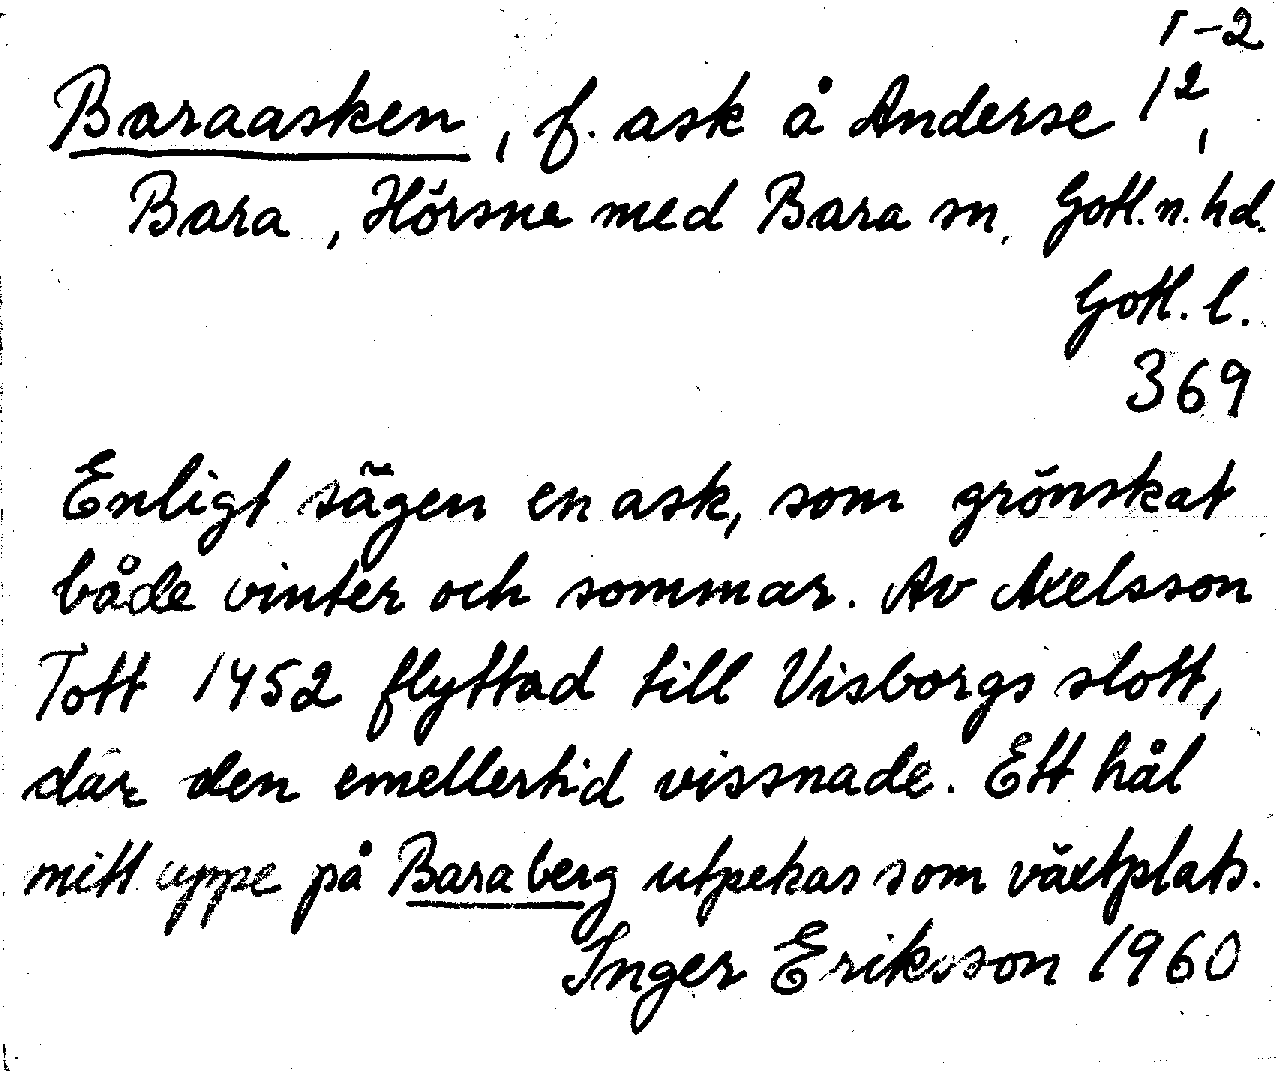 1-2
Baraasken, f. ask å Anderse 1²,
Bara, Hörsne med Bara sn, Gotl. n. hd.
Gotl. l.
369
Enligt sägen en ask, som grönskat
både vinter och sommar. Av Axelsson
Tott 1452 flyttad till Visborgs slott,
där den emellertid vissnade. Ett hål
mitt uppe på Baraberg utpekas som växtplats.
Inger Eriksson 1960